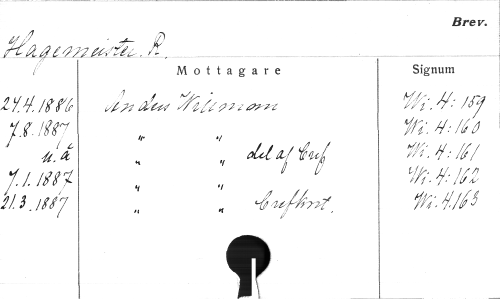 Brev.
Hagemeister R.
Mottagare Signum
24.4.1886 Anders Willman Wi.4:159
7.8.1887 " " Wi.4:160
u.å " " del af bref Wi.4:161
7.1.1887 " " Wi.4:162
21.3.1887 " " brefkort. Wi.4.163